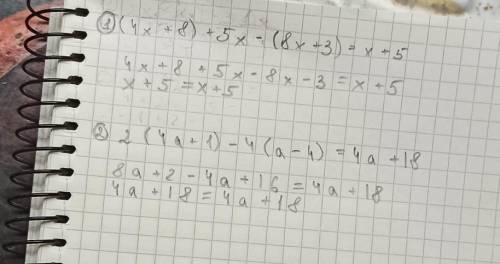 ① (4x + 8) + 5x - (8x + 3) = x + 5
4x + 8 + 5x - 8x - 3 = x + 5
x + 5 = x + 5
② 2 (4a + 1) - 4 (a - 4) = 4a + 18
8a + 2 - 4a + 16 = 4a + 18
4a + 18 = 4a + 18